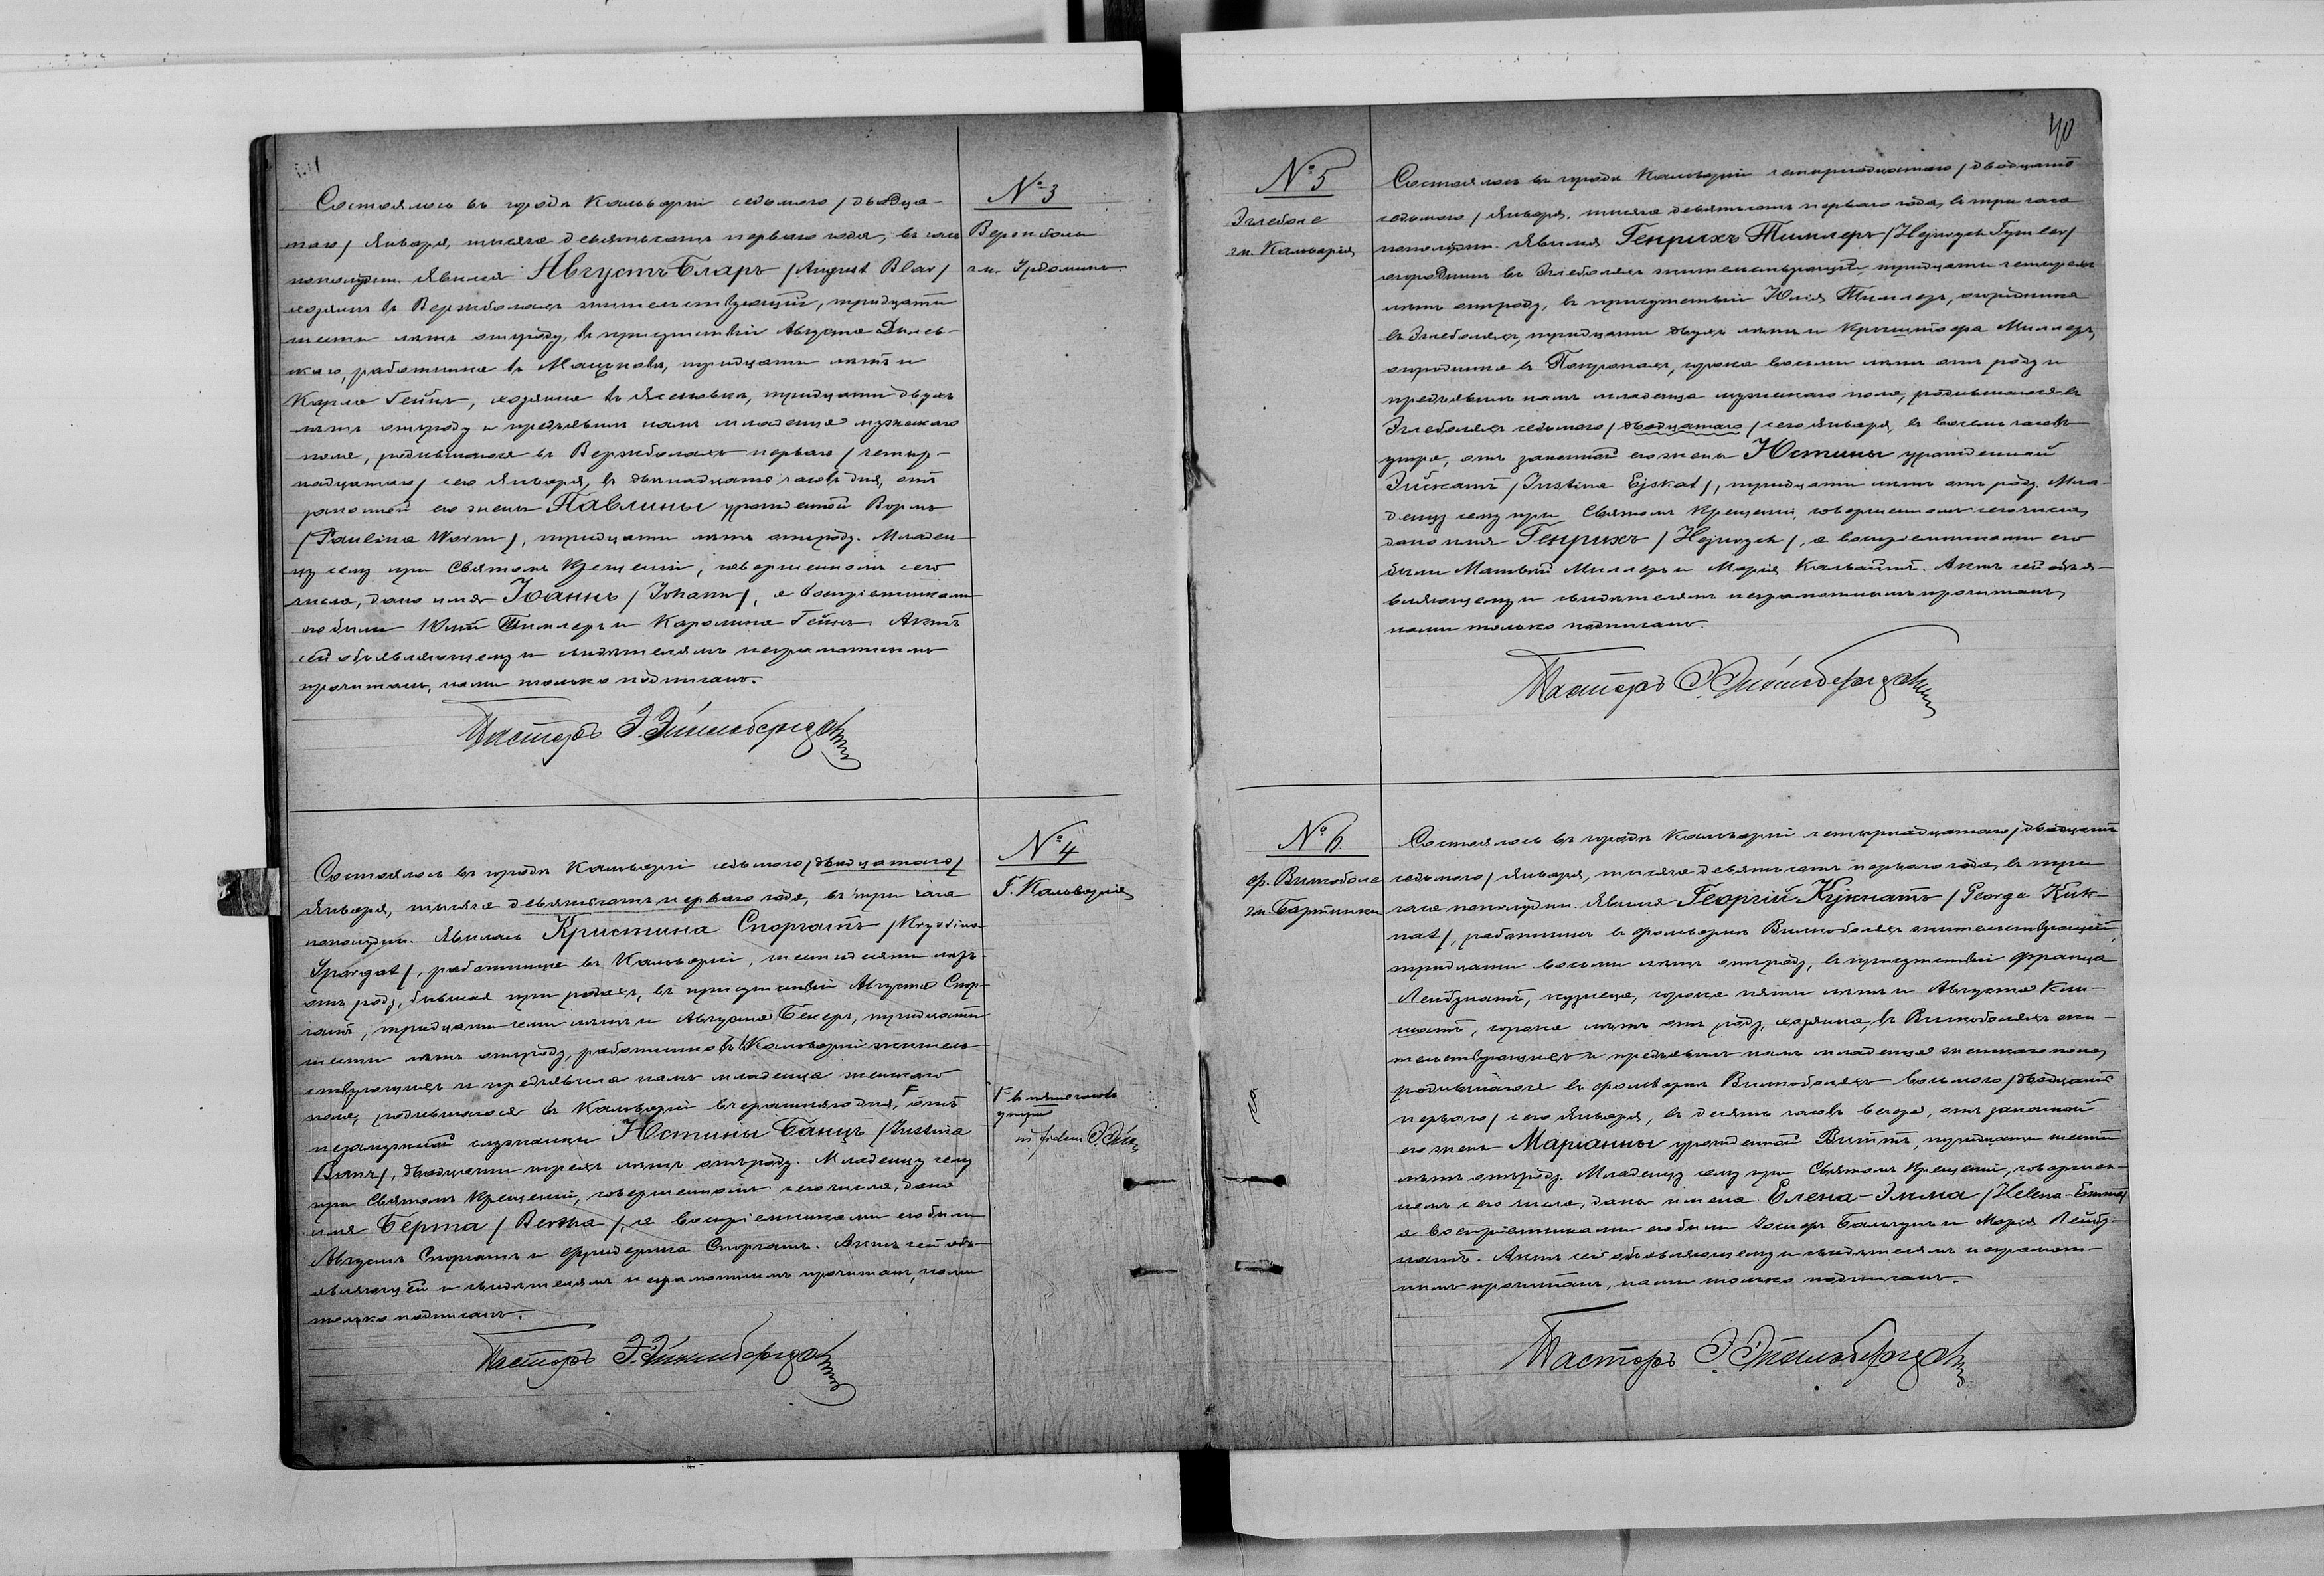 Состоялось въ городѣ Кальваріи седьмого /двадца-
таго/ Января, тысяча девятьсотъ перваго года, въ часъ
пополудни. Явился Августъ Бларъ /August Blar/
хозяинъ въ Вержболахъ жительствующій, тридцати
шести лѣтъ отъ роду, въ присутствіи Августа
работника въ тридцати лѣтъ и
Карла Гейнъ, хозяина въ Ясеновкѣ, тридцати двухъ
лѣтъ отъ роду и предъявилъ намъ младенца мужескаго
пола, родившагося въ Вержболахъ перваго /четыр-
надцатаго/ сего Января, въ двѣнадцать часовъ дня, отъ
законной его жены Павлины урожденной Вормъ
/Paulina Worm/, тридцати лѣтъ отъ роду. Младен-
цу сему при Святомъ Крещеніи, совершенномъ сего
числа, дано имя Іоаннъ /Johann/, а воспріемниками
его были Юлій Тимлеръ и Каролина Гейнъ. Актъ
сей объявляющему и свидѣтелямъ неграмотнымъ
прочитанъ, нами только подписанъ.
Пасторъ Э.
№ 3
Вержболы
гм.
Состоялось въ городѣ Кальваріи седьмого /двадцатаго/
Января, тысяча девятьсотъ перваго года, въ три часа
пополудни. Явилась Кристина Споргатъ /Krystina
Sporgat/, работница въ Кальваріи, шестидесяти лѣтъ
отъ роду, бывшая при родахъ, въ присутствіи Августа Спор-
гатъ, тридцати семи лѣтъ и Августа Бекеръ, тридцати
шести лѣтъ отъ роду, работниковъ въ Кальваріи житель-
ствующихъ и предъявила намъ младенца женскаго
пола, родившагося въ Кальваріи вчерашняго дня, отъ
незамужней служанки Юстины Банцъ /Justina
Banz/, двадцати трехъ лѣтъ отъ роду. Младенцу сему
при Святомъ Крещеніи, совершенномъ сего числа, дано
имя Берта /Bertha/, а воспріемниками его были
Августъ Споргатъ и Фридерика Споргатъ. Актъ сей объ-
являющей и свидѣтелямъ неграмотнымъ прочитанъ, нами
только подписанъ.
Пасторъ Э.
№ 4
Г. Кальварія
въ пять часовъ
утра
in fidem
40
№ 5
Эглеболе
гм. Кальварія
Состоялось въ городѣ Кальваріи четырнадцатаго /двадцать
седьмого/ Января, тысяча девятьсотъ перваго года, въ три часа
пополудни. Явился Генрихъ Тимлеръ /Hejnrych Tymler/
огородникъ въ Эглеболяхъ жительствующій, тридцати четырехъ
лѣтъ отъ роду, въ присутствіи Юлія Тимлеръ, огородника
въ Эглеболяхъ, тридцати двухъ лѣтъ и Криштофа Миллеръ,
огородника въ сорока восьми лѣтъ отъ роду и
предъявилъ намъ младенца мужескаго пола, родившагося въ
Эглеболяхъ седьмого /двадцатаго/ сего Января, въ восемь часовъ
утра, отъ законной его жены Юстины урожденной
Эйскатъ /Justina Ejskat/, тридцати лѣтъ отъ роду. Мла-
денцу сему при Святомъ Крещеніи, совершенномъ сего числа,
дано имя Генрихъ /Hejnrych/, а воспріемниками его
были Матвѣй Миллеръ и Марія Кальвайтъ. Актъ сей объя-
вляющему и свидѣтелямъ неграмотнымъ прочитанъ,
нами только подписанъ.
Пасторъ Э.
№ 6
ф. Вилкоболе
гм. Бартники
Состоялось въ городѣ Кальваріи четырнадцатаго /двадцать
седьмого/ Января, тысяча девятьсотъ перваго года, въ три
часа пополудни. Явился Георгій Кукнатъ /George Kuk-
nat/, работникъ въ фольваркѣ Вилкоболяхъ жительствующій,
тридцати восьми лѣтъ отъ роду, въ присутствіи Франца
кузнеца, сорока пяти лѣтъ и Августа
сорока лѣтъ отъ роду, хозяина, въ Вилкоболяхъ жи-
тельствующихъ и предъявилъ намъ младенца женскаго пола,
родившагося въ фольваркѣ Вилкоболяхъ восьмого /двадцать
перваго/ сего Января, въ десять часовъ вечера, отъ законной
его жены Маріанны урожденной Виттъ, тридцати шести
лѣтъ отъ роду. Младенцу сему при Святомъ Крещеніи, совершен-
номъ сего числа, даны имена Елена-Эмма /Helena-Emma/
а воспріемниками его были и Марія
Актъ сей объявляющему и свидѣтелямъ неграмот-
нымъ прочитанъ, нами только подписанъ.
Пасторъ Э.